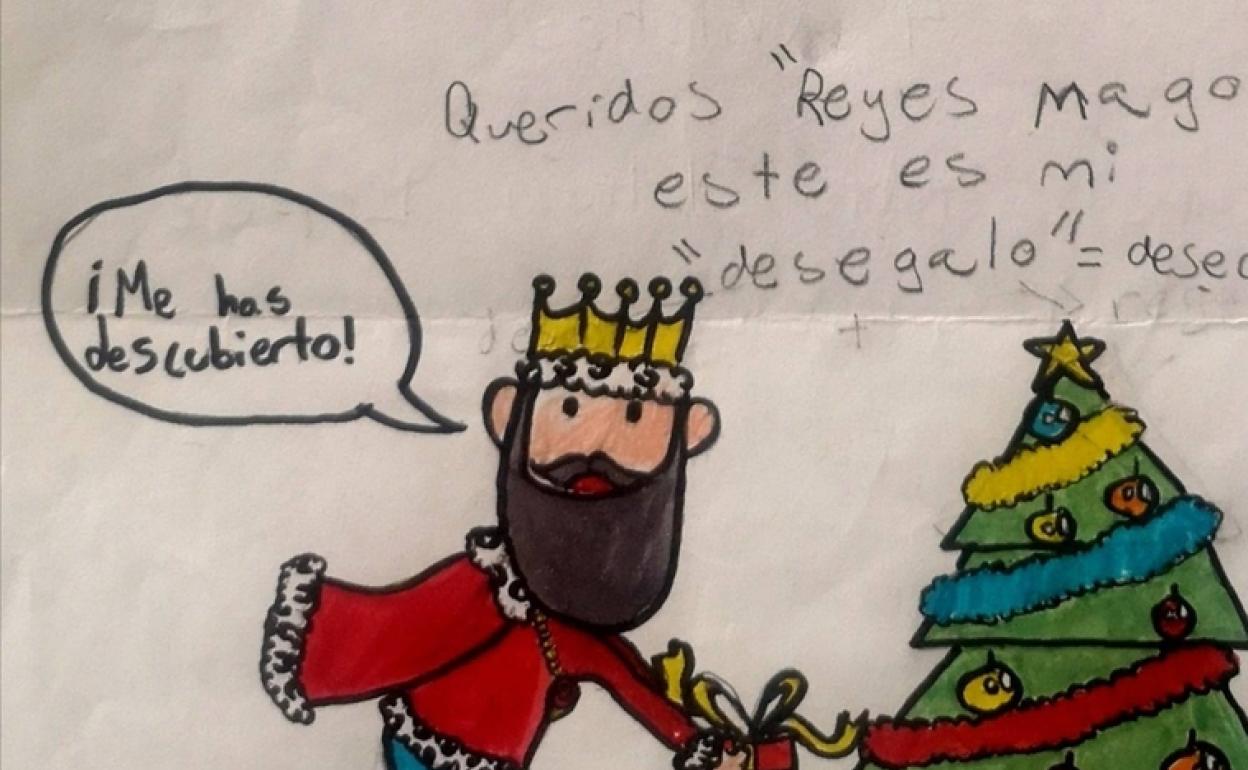 Queridos "Reyes mago
este es mi
"desegalo" = desec
+
¡Me has
descubierto!